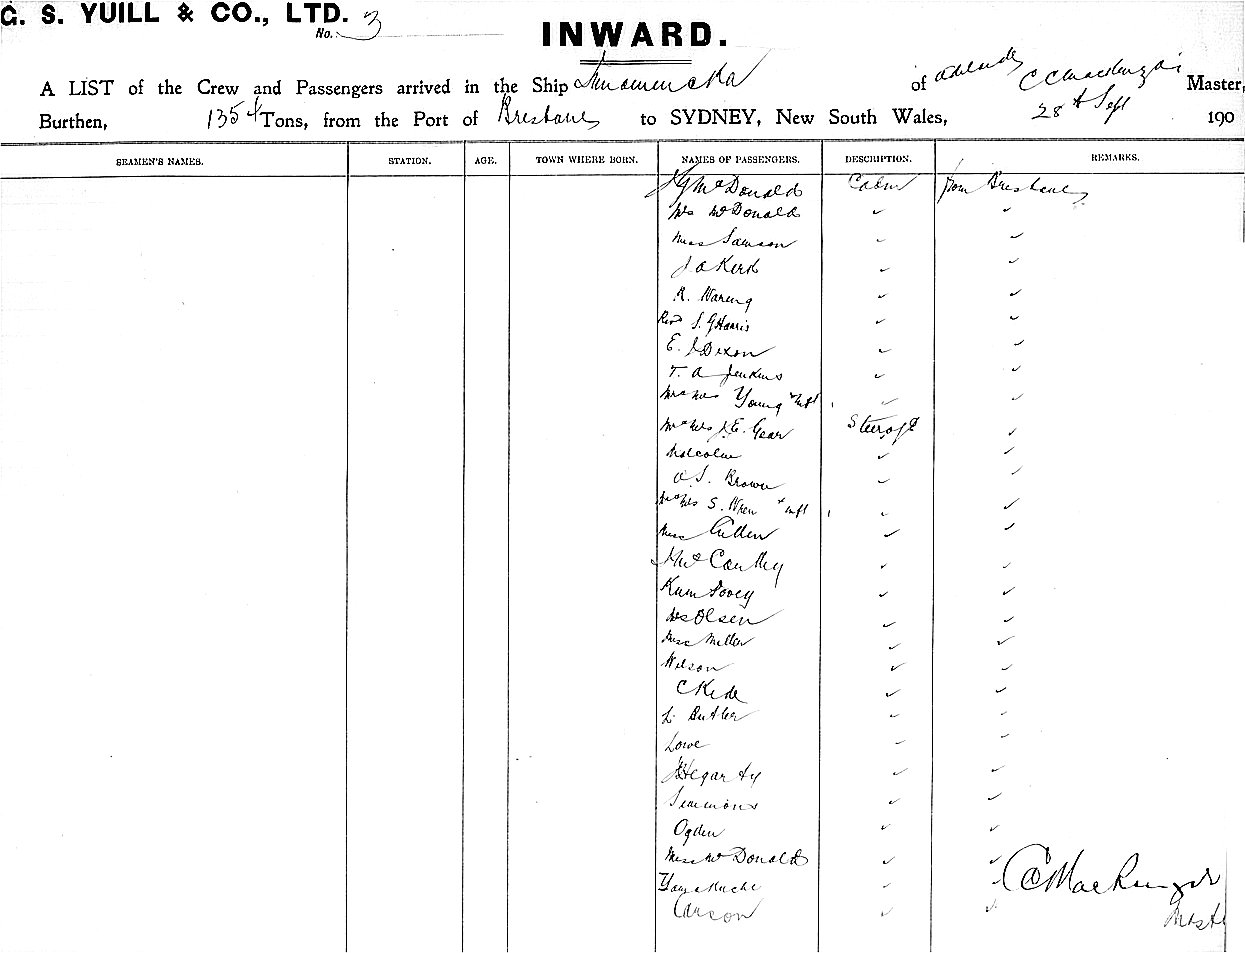 G. S. YUILL & CO., LTD.
No. 3
INWARD.
A LIST of the Crew and Passengers arrived in the Ship Innamincka of Adelaide C C MacKenzie Master,
Burthen, 1354 Tons, from the Port of Brisbane to SYDNEY, New South Wales, 28th Sept 190
SEAMEN'S NAMES. STATION. AGE. TOWN WHERE BORN. NAMES OF PASSENGERS. DESCRIPTION. REMARKS.
McDonald Cabin from Brisbane
Mrs McDonald
Miss Samson
J A Kerd
R. Waring
Revd S. G Harris
E. J Dixon
T. A Jenkins
Mr & Mrs Young & Inft
Mr & Mrs J. E. Gear Steerage
Malcolm
A. S. Brown
Mr & Mrs S. Wren & inft
Miss Cullen
McCarthy
Olsen
Miss Miller
Wilson
C
L. Butler
Lowe
Hegarty
Simmons
Ogden
Miss McDonald
Carson
C C MacKenzie
Mast